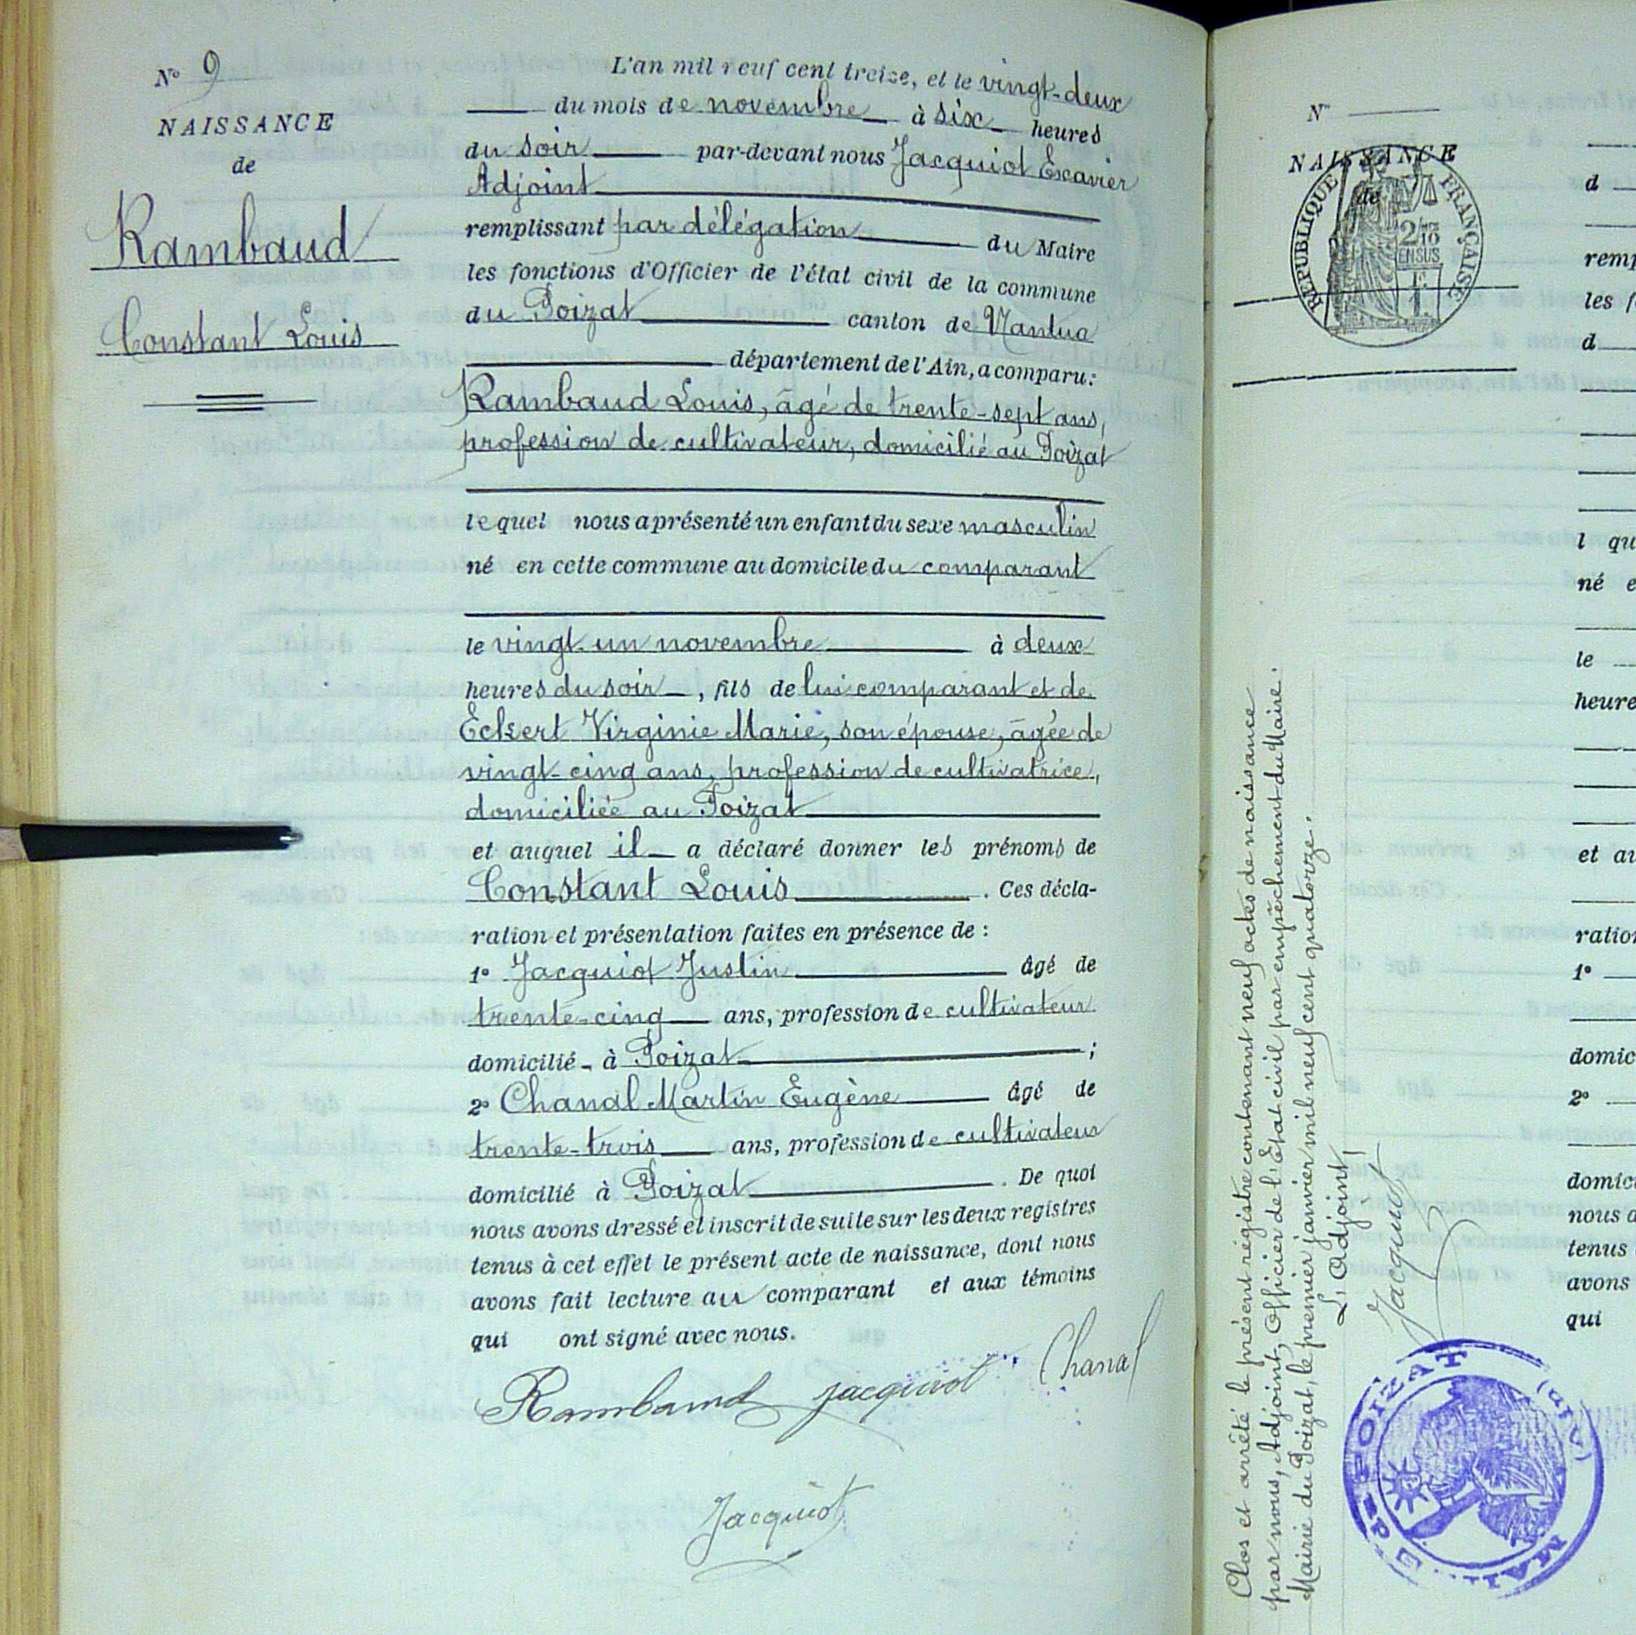 N° 9
NAISSANCE
de
Rambaud
Constant Louis
L'an mil neuf cent treize, et le vingt-deux
du mois de novembre à six heures
du soir par-devant nous Jacquiot Exavier
Adjoint
remplissant par délégation du Maire
les fonctions d'Officier de l'état civil de la commune
du Poizat canton de Nantua
département de l'Ain, a comparu:
Rambaud Louis, âgé de trente-sept ans,
profession de cultivateur, domicilié au Poizat
lequel nous a présenté un enfant du sexe masculin
né en cette commune au domicile du comparant
le vingt-un novembre à deux
heures du soir, fils de lui comparant et de
Eckert Virginie Marie, son épouse, âgée de
vingt-cinq ans, profession de cultivatrice,
domiciliée au Poizat
et auquel il a déclaré donner les prénoms de
Constant Louis. Ces décla-
ration et présentation faites en présence de :
1° Jacquiot Justin âgé de
trente-cinq ans, profession de cultivateur
domicilié à Poizat ;
2° Chanal Martin Eugène âgé de
trente-trois ans, profession de cultivateur
domicilié à Poizat. De quoi
nous avons dressé et inscrit de suite sur les deux registres
tenus à cet effet le présent acte de naissance, dont nous
avons fait lecture au comparant et aux témoins
qui ont signé avec nous.
Rambaud Jacquiot Chanal
Jacquiot
N°
NAISSANCE
de
RÉPUBLIQUE FRANÇAISE
2/10
EN SUS
Clos et arrêté le présent régistre contenant neuf actes de naissance
par nous, Adjoint, Officier de l'Etat civil par empêchement du Maire.
Mairie du Poizat, le premier janvier mil neuf cent quatorze.
L'Adjoint,
Jacquiot
MAIRIE DE POIZAT (AIN)
d
remp
les f
d
l qu
né e
le
heure
et au
ration
1°
domic
2°
domici
nous a
tenus
avons
qui